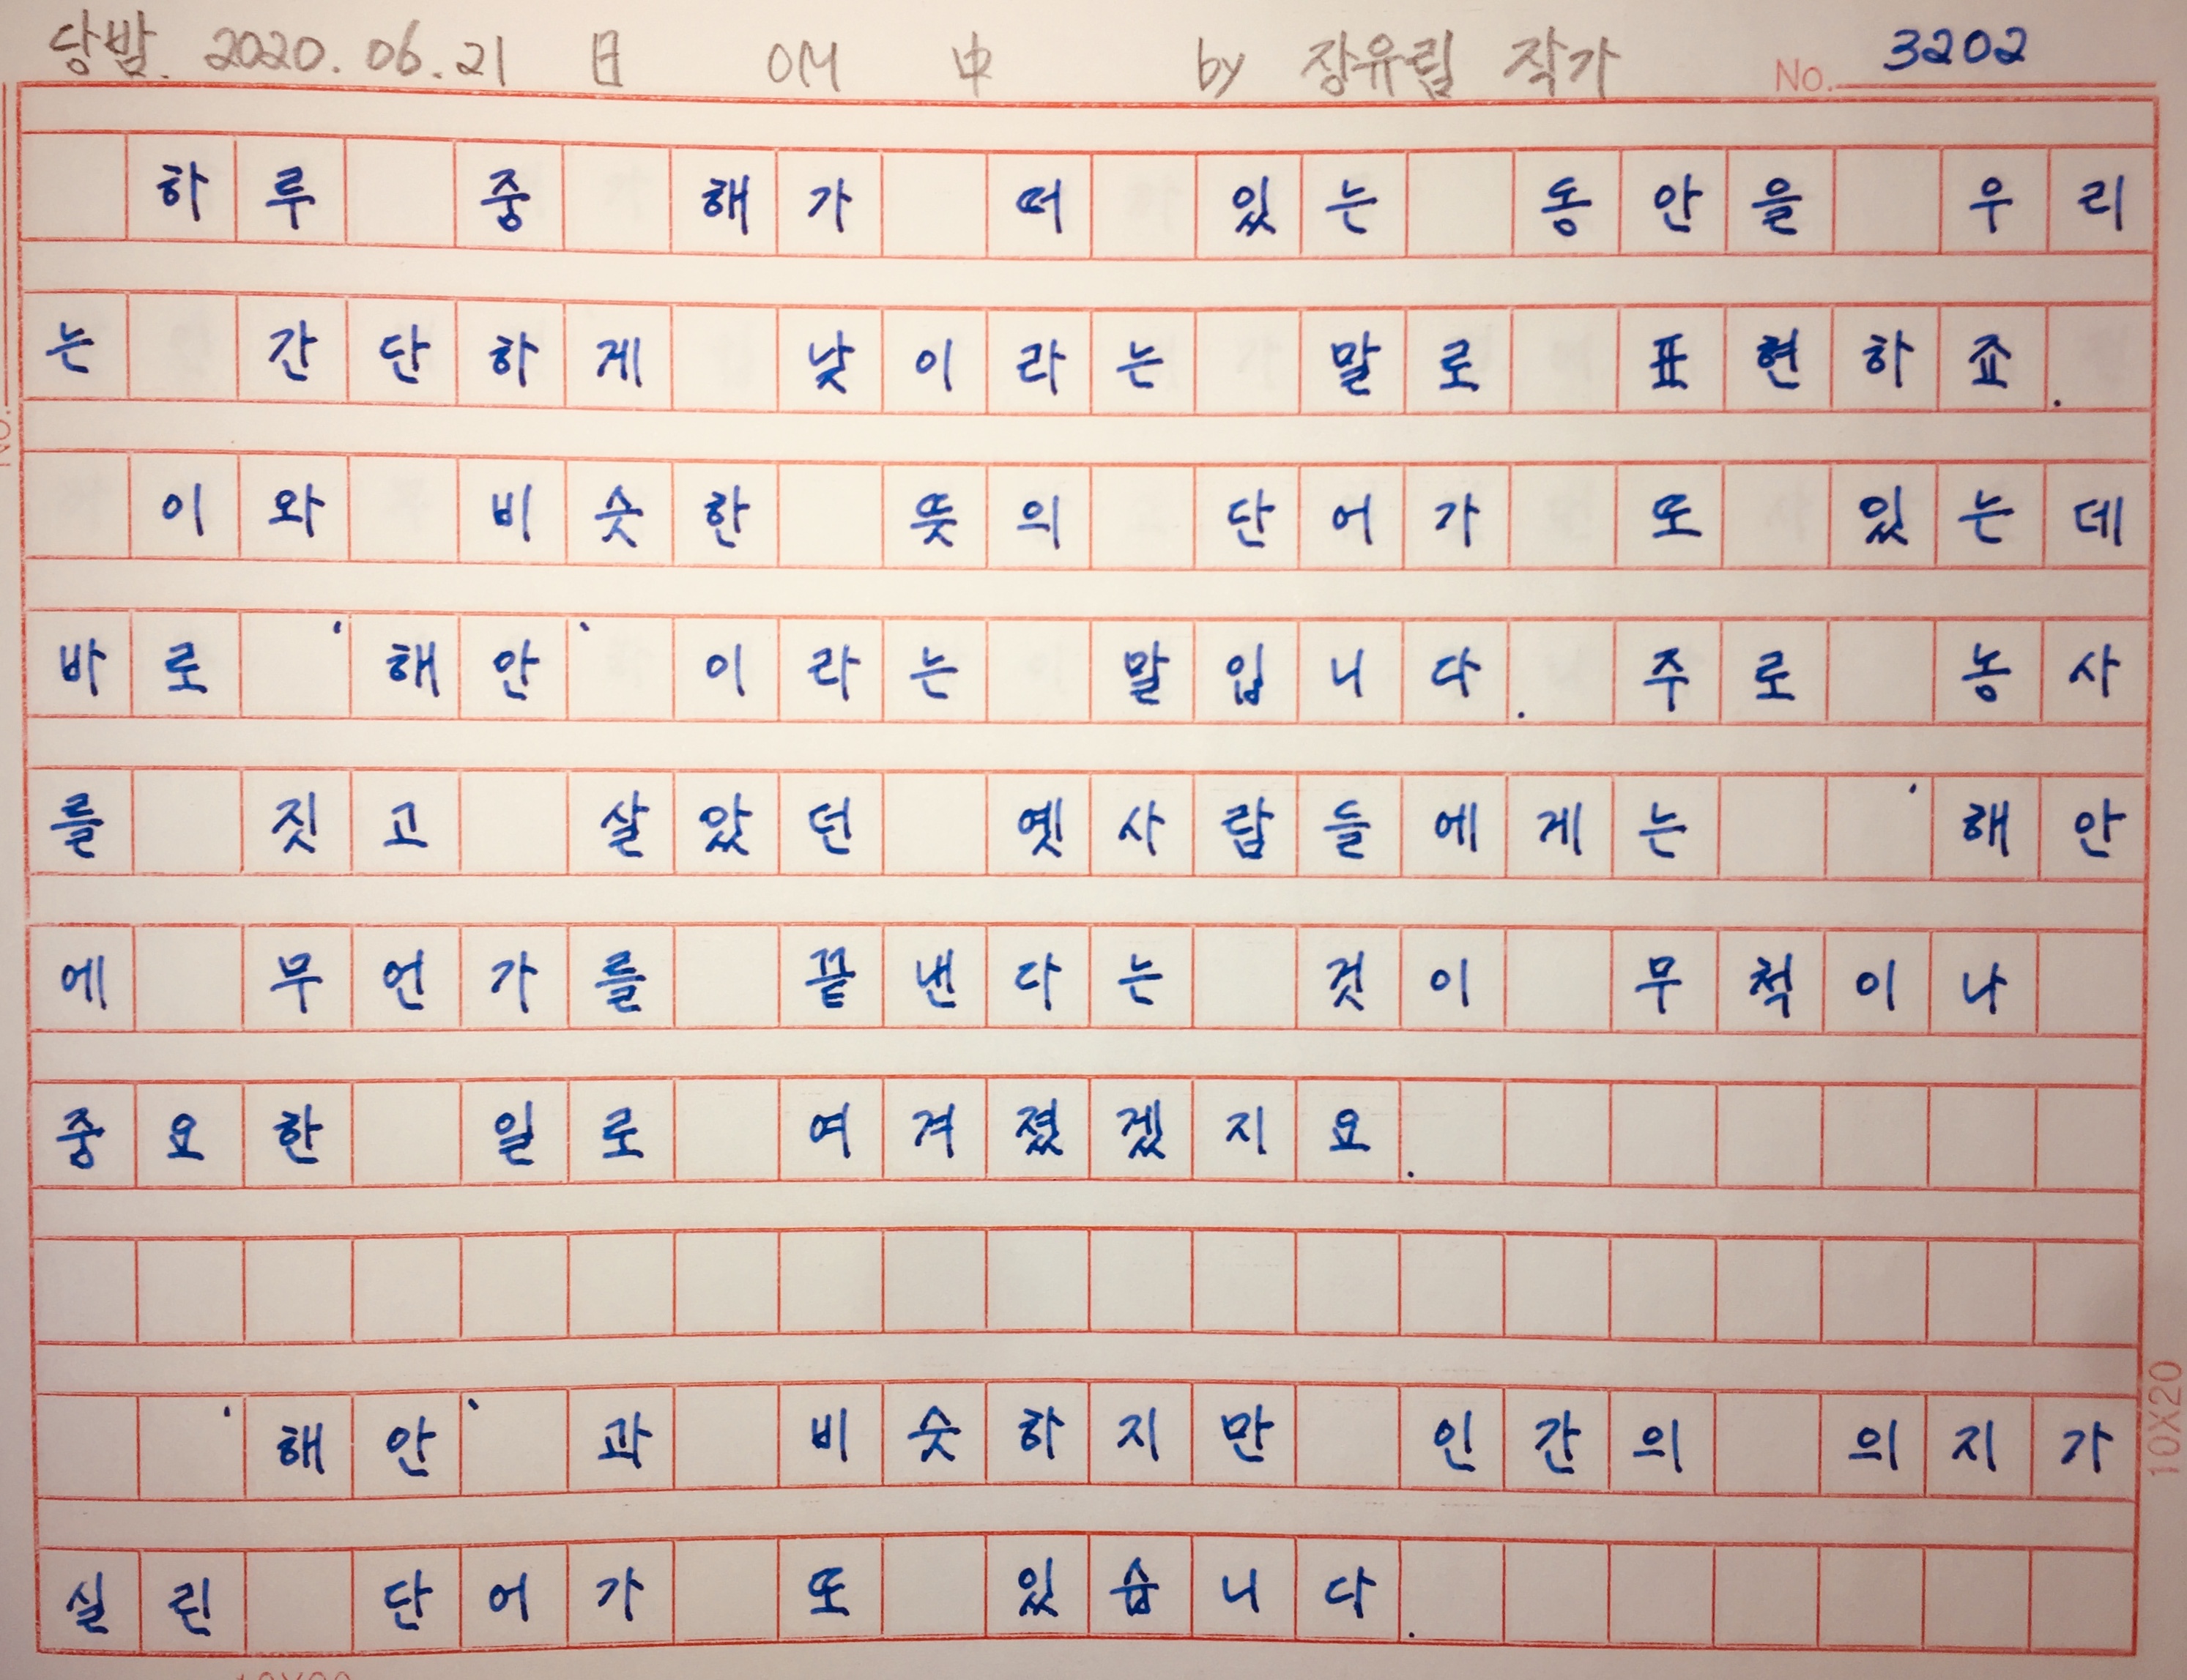 당밤. 2020. 06. 21 日 OM 中 by 장유림 작가 No. 3202
하루 중 해가 떠 있는 동안을 우리
는 간단하게 낮이라는 말로 표현하죠.
이와 비슷한 뜻의 단어가 또 있는데
바로 ‘해안’이라는 말입니다. 주로 농사
를 짓고 살았던 옛사람들에게는 ‘해안
에 무언가를 끝낸다는 것이 무척이나
중요한 일로 여겨졌겠지요.
‘해안’과 비슷하지만 인간의 의지가
실린 단어가 또 있습니다.
10X20